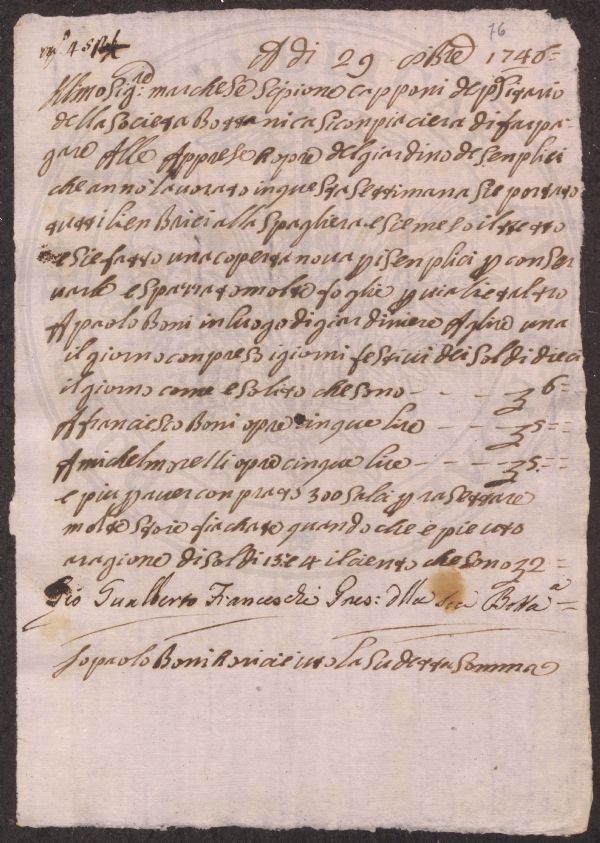 76
A di 29 Obre 1746=
Illmo Sigre: marchese Scipione capponi depositario
della Societa Bottanica Siconpiacera di far pa-
gare Alle Apprese hopre del giardino de Senplici
che anno lavorato in questa Settimana Sie portato
tutti li en Brici alla Spagliera e Sie meso il tetto
e Sie fatto una coperta nova p i Senplici p conser
varle e Sparrato molte foglie p viali et altro
A paolo Boni in luogo di giardiniere A lire una
il giorno conpreso i giorni festivi dei Soldi dieci
il giorno come e Solito che Sono - - - - 6=
A franciesco Boni opre cinque lire - - - - 5==
A michel morelli opre cinque lire - - - - 5==
e piu p aver conprato 300 Salci p rasettare
molte Stoie fiachate quando che e piovuto
a ragione di Soldi 13: e 4 il ciento che Sono 2=
Gio Gualberto Franceschi Pres: dlla Soc Botta=
Io paolo Boni ho ricievuto la Sudetta Somma